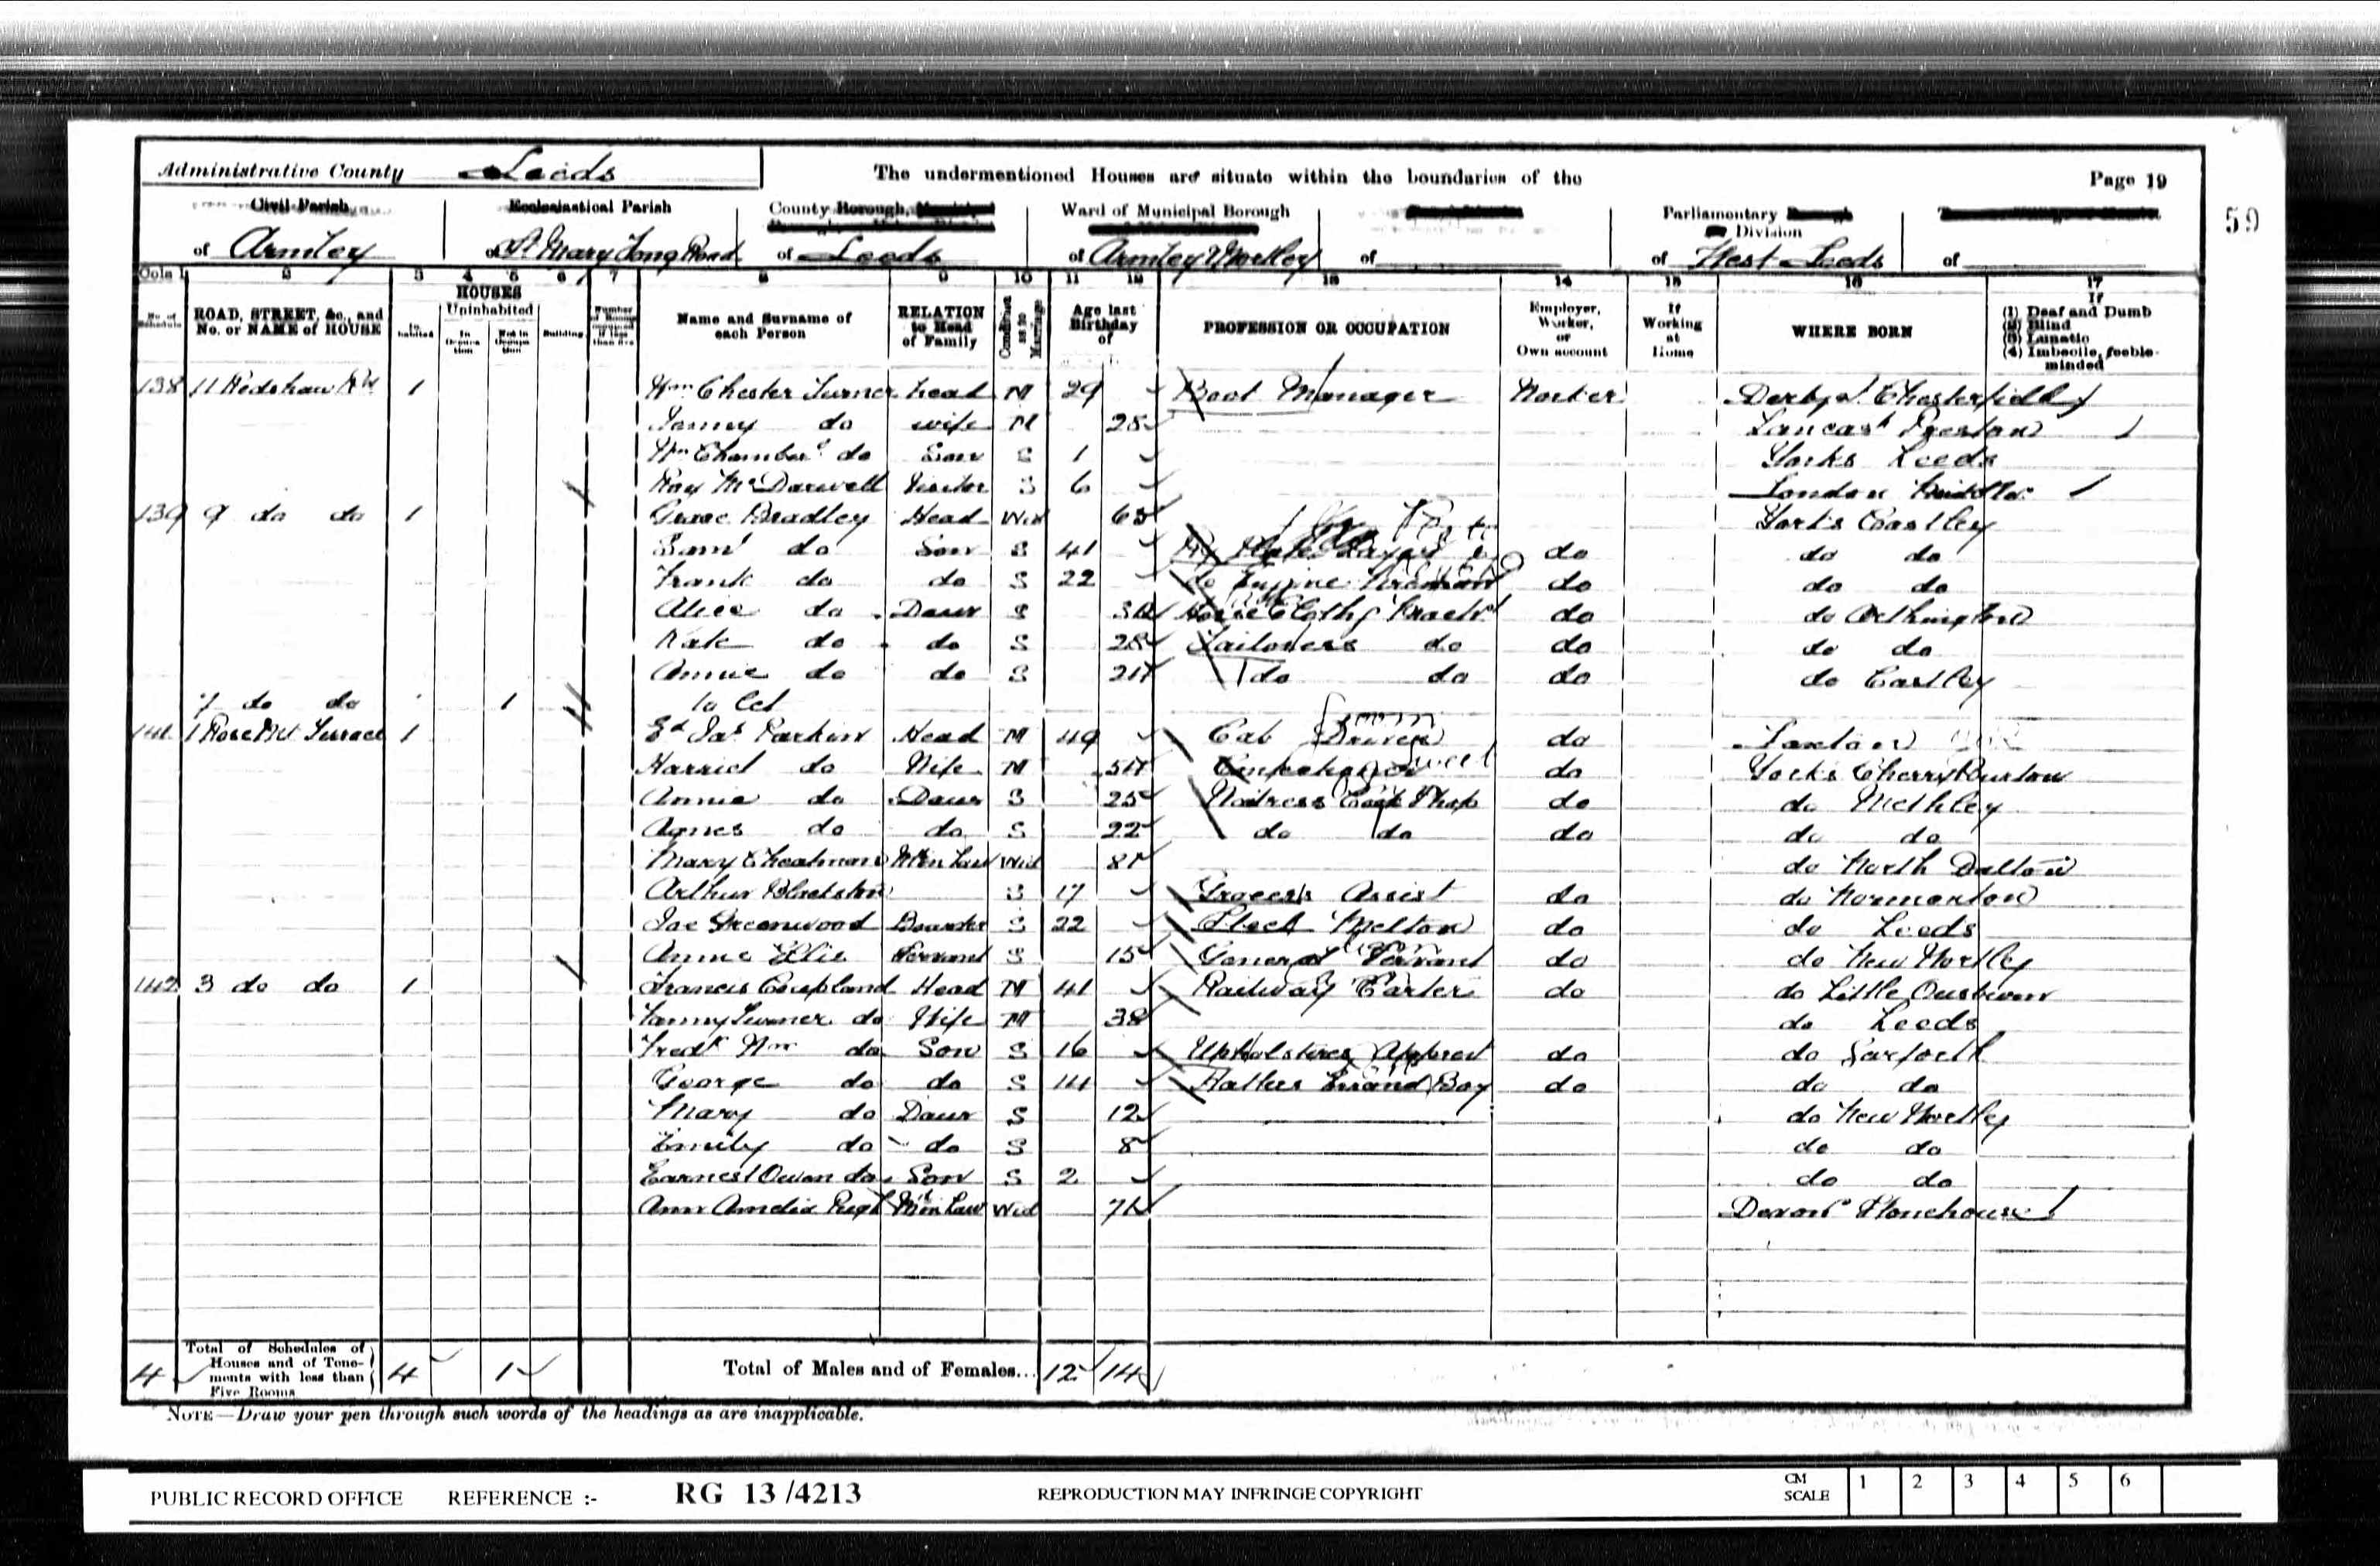 Administrative County Leeds The undermentioned Houses are situate within the boundaries of the Page 19
Civil Parish Ecclesiastical Parish County Borough, Ward of Municipal Borough Parliamentary Division 59
of Armley of St Mary Tong Road of Leeds of Armley & Wortley of of West Leeds of
Cols 1 2 3 4 5 6 7 8 9 10 11 12 13 14 15 16 17
No. of Schedule ROAD, STREET, &c., and No. or NAME of HOUSE HOUSES Inhabited Uninhabited In Occupation Not in Occupation Building Name and Surname of each Person RELATION to Head of Family Condition as to Marriage Age last Birthday of PROFESSION OR OCCUPATION Employer, Worker, or Own account If Working at Home WHERE BORN If (1) Deaf and Dumb (2) Blind (3) Lunatic (4) Imbecile, feeble-minded
138 11 Redshaw Rd 1 Wm Chester Turner head M 29 Boot Manager Worker Derbys. Chesterfield
Fanny do wife M 25 Lancash Preston
Wm Chambers do Son S 1 Yorks Leeds
Ray McDarwell Visitor S 6 London
139 9 do do 1 Grace Bradley Head Wid 63 Yorks Castley
Saml do Son S 41 Ry Plate Layer do do do
Frank do do S 22 do Engine Fireman do do do
Alice do Daur S do do Arthington
Kate do do S 28 Tailoress do do do do
Annie do do S 21 do do do do Castley
7 do do 1 to let
141 1 Rose Mt Terrace 1 Ed Jas Parkin Head M 49 Cab Driver do
Harriet do Wife M do Yorks Cherry Burton
Annie do Daur S 25 Waitress Cook Shop do do Methley
Agnes do do S 22 do do do do do
Mary Cheatman M in Law Wid 81 do North Dalton
Arthur S 17 Grocers Assist do do Normanton
Joe Greenwood Boarder S 22 Steel Melton do do Leeds
Annie Servant S 15 General Servant do do New Wortley
142 3 do do 1 Francis Coupland Head M 41 Railway Carter do do Little
Fanny Turner do Wife M 38 do Leeds
Fredk Wm do Son S 16 Upholsterer Apprent do do
George do do S 14 Hatters Errand Boy do do do
Mary do Daur S 12 do New Wortley
Emily do do S 8 do do
Earnest Owen do Son S 2 do do
Ann Amelia Pugh M in Law Wid 71 Devon Stonehouse
4 Total of Schedules of Houses and of Tenements with less than Five Rooms 4 1 Total of Males and of Females... 12 14
NOTE—Draw your pen through such words of the headings as are inapplicable.
PUBLIC RECORD OFFICE REFERENCE :- RG 13/4213 REPRODUCTION MAY INFRINGE COPYRIGHT CM SCALE 1 2 3 4 5 6